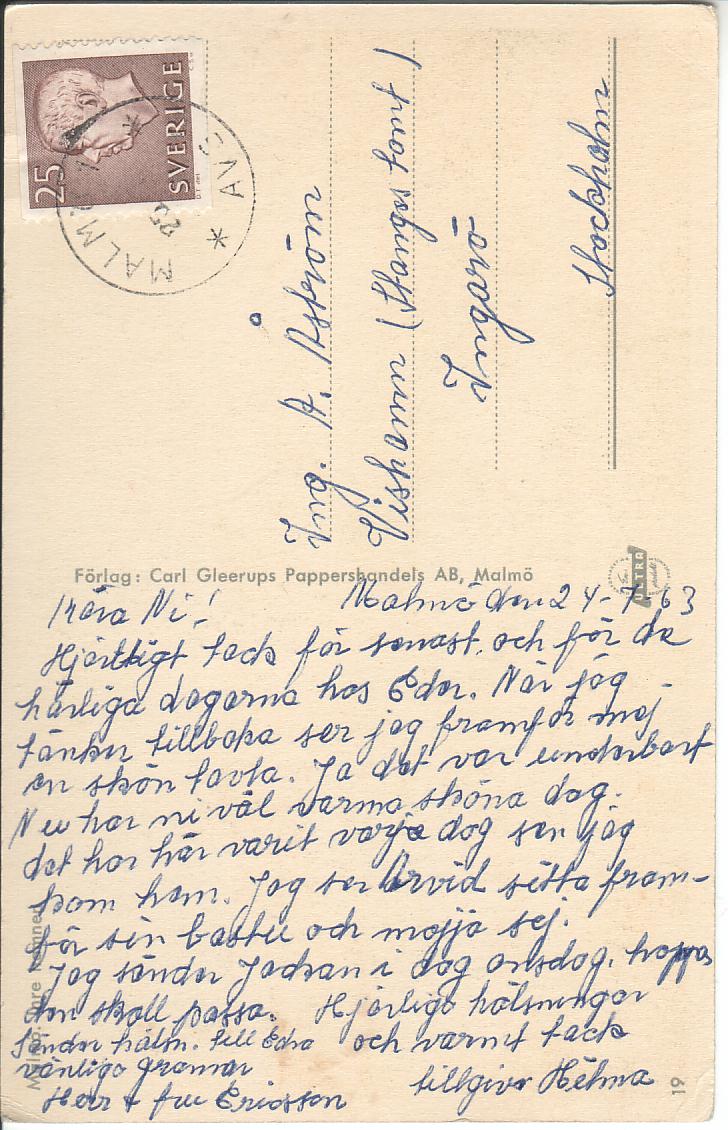 25
SVERIGE
MALMÖ
Ing. A. Åström
Ingarö
Stockholm
Förlag: Carl Gleerups Pappershandels AB, Malmö
ULTRA
Kära Ni! Malmö den 24-7-63
Hjärtligt tack för senast, och för de
härliga dagarna hos Eder. När jag
tänker tillbaka ser jag framför mej
en skön tavla. Ja det var underbart
Nu har ni väl varma sköna dag.
det har här varit varje dag sen jag
kom hem. Jag ser Arvid sitta fram-
för sin bastu och mojja sej.
Jag sänder Jackan i dag onsdag, hoppas
den skall passa. Hjärliga hälsningar
Sänder hälsn. till Edra och varmt tack
vänliga grannar
Herr & fru Ericsson tillgivn Hélma
19